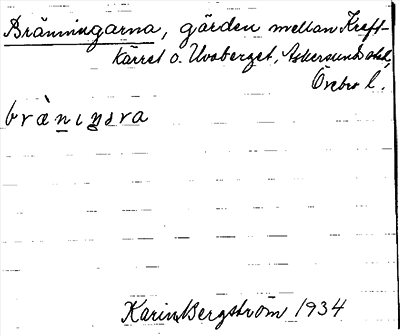 Bränningarna, gärden mellan Kraft-
kärret o. Uvaberget, Askersunds stad,
Örebro l.
brä̀niŋara
Karin Bergström 1934